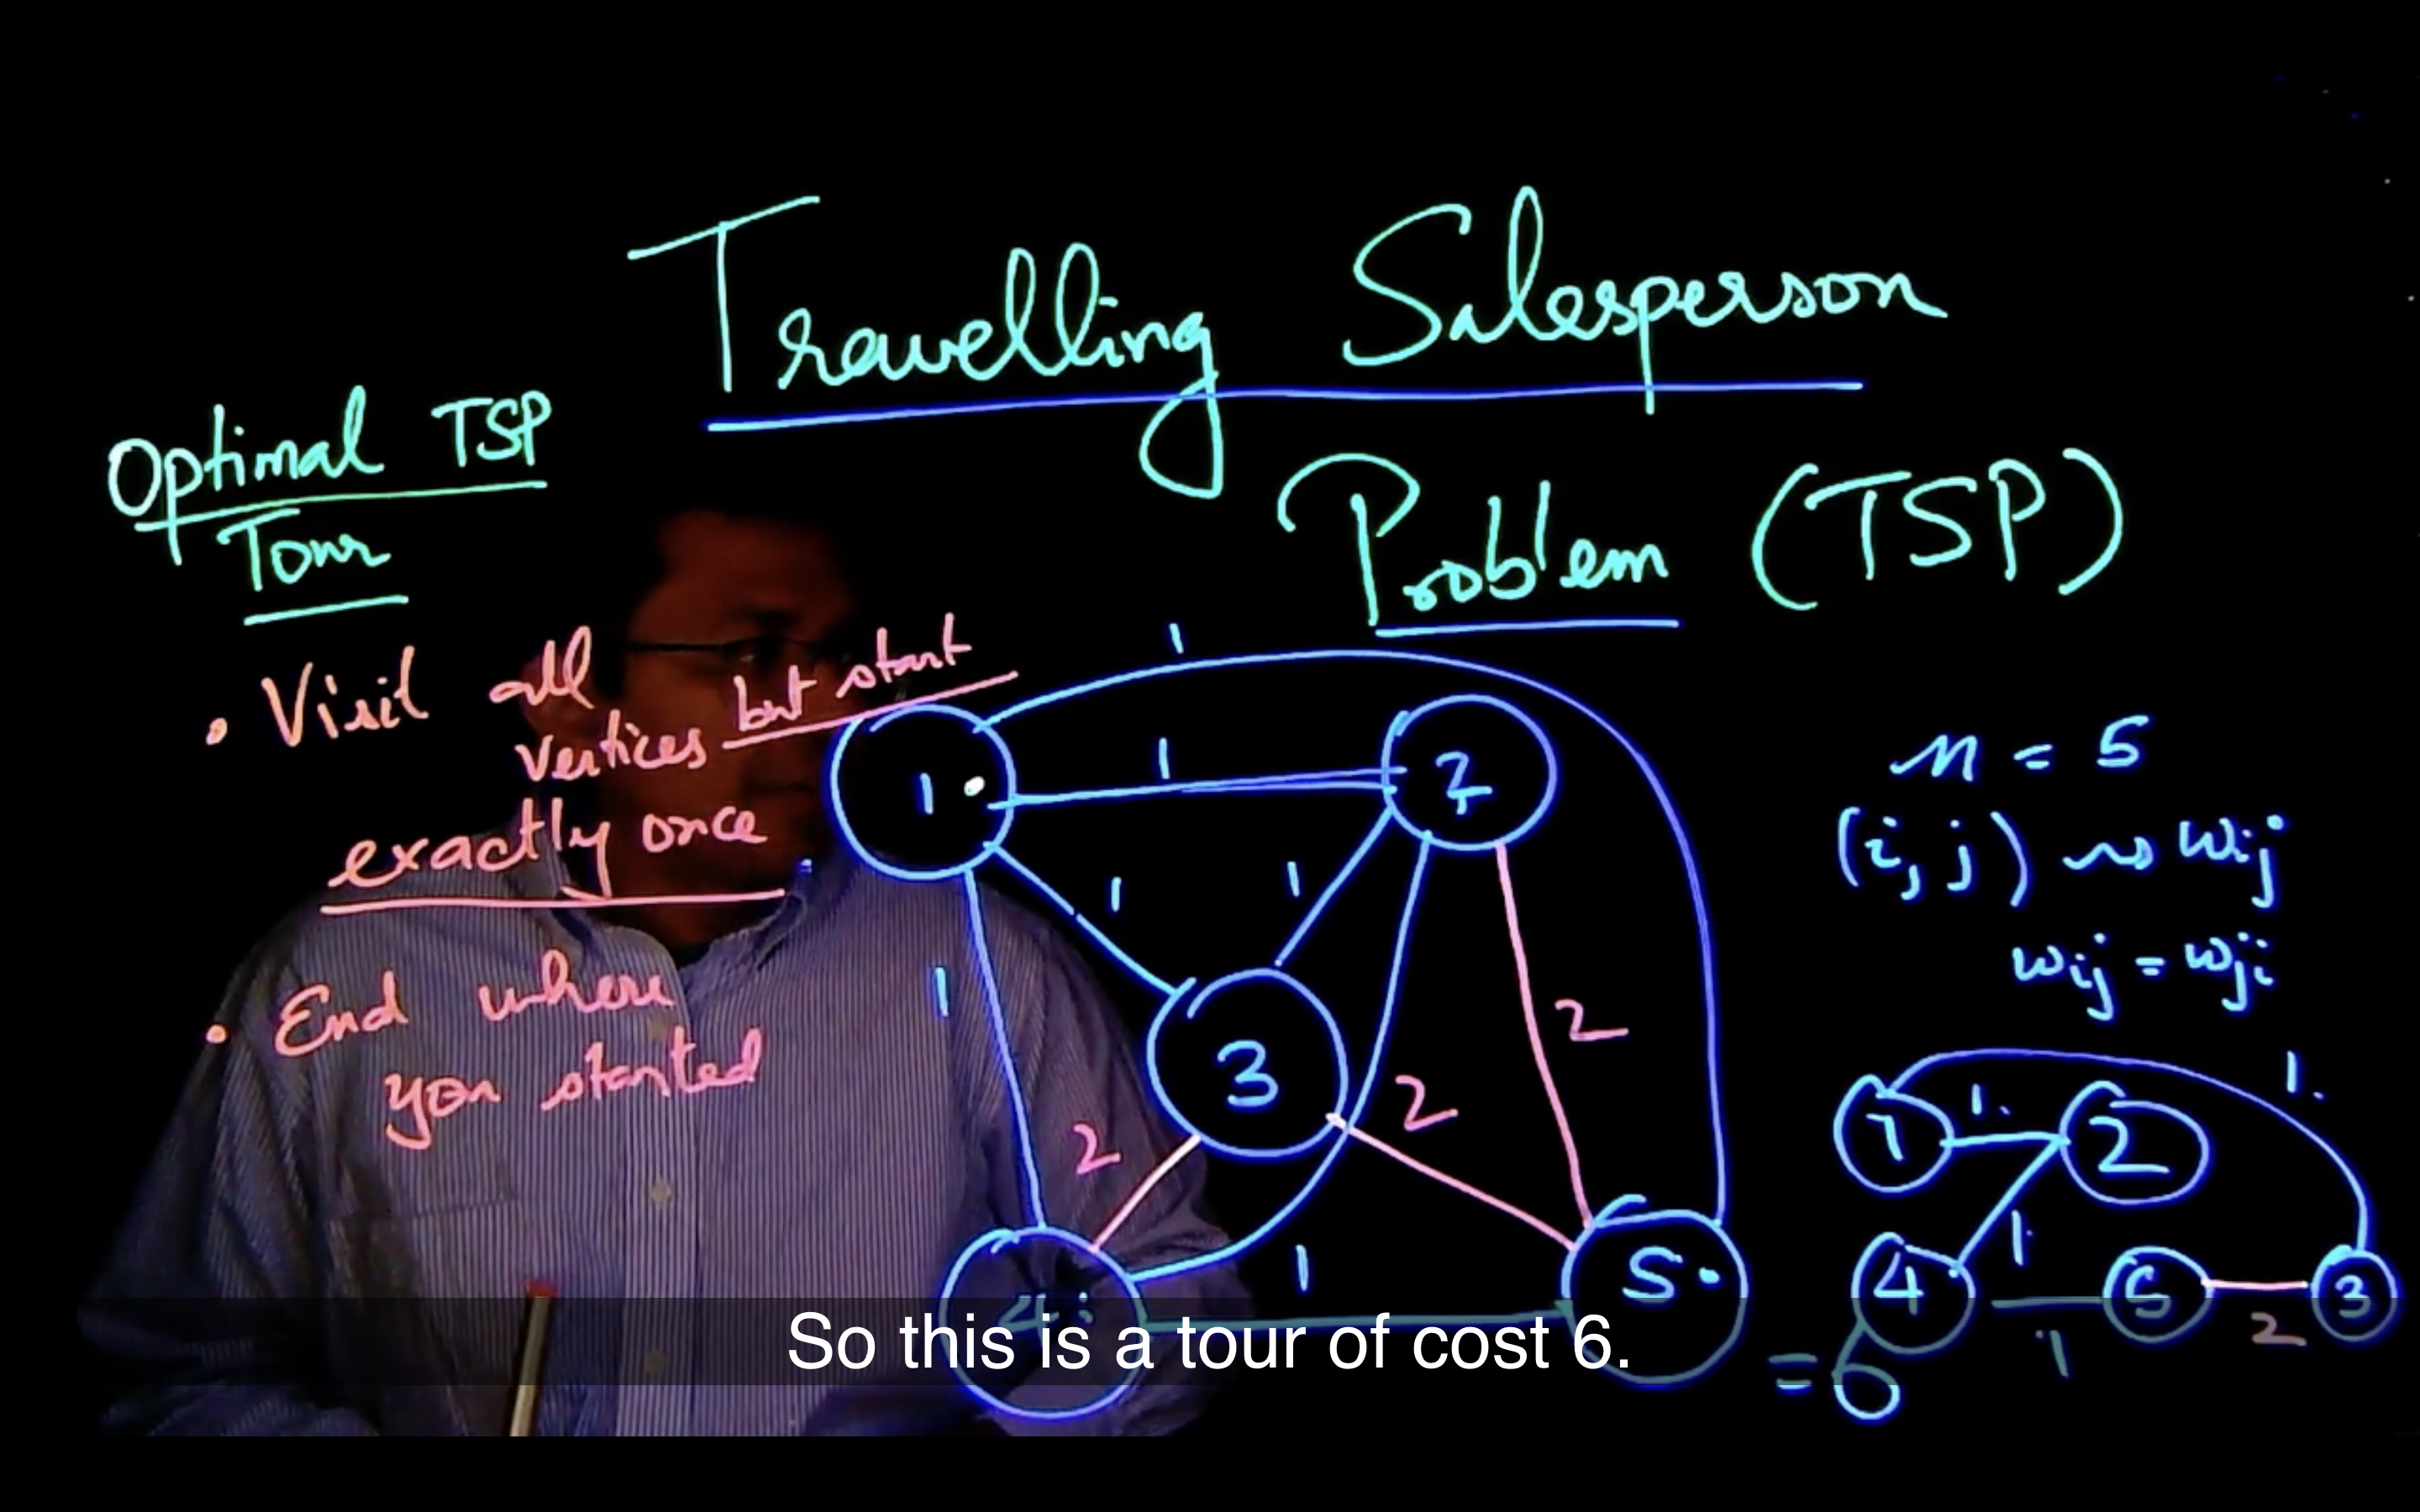 Travelling Salesperson
Problem (TSP)
Optimal TSP
Tour
• Visit all
vertices but start
exactly once
• End where
you started
1
1
1
2
1
1
1
3
2
2
2
1
4
5
n = 5
(i, j) ~> wij
wij = wji
1
1.
2
1.
4
1.
5
3
1
2
= 6
So this is a tour of cost 6.